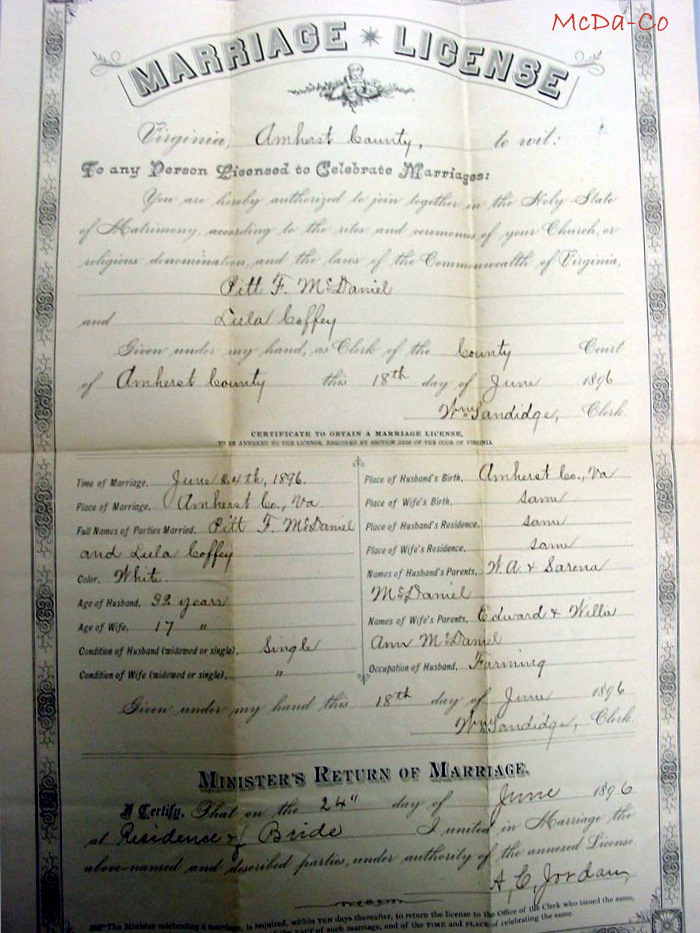 McDa-Co
MARRIAGE LICENSE
Virginia, Amherst County, to wit:
To any Person Licensed to Celebrate Marriages:
You are hereby authorized to join together in the Holy State
of Matrimony, according to the rites and ceremonies of your Church, or
religious denomination, and the laws of the Commonwealth of Virginia,
Pitt F. McDaniel
and Lula Coffey
Given under my hand, as Clerk of the County Court
of Amherst County this 18th day of June 1896
Wm Sandidge, Clerk.
CERTIFICATE TO OBTAIN A MARRIAGE LICENSE,
TO BE ANNEXED TO THE LICENSE, REQUIRED BY SECTION 2229 OF THE CODE OF VIRGINIA.
Time of Marriage, June 24th, 1896.
Place of Marriage, Amherst Co., Va
Full Names of Parties Married, Pitt F. McDaniel
and Lula Coffey
Color, White.
Age of Husband, 32 years
Age of Wife, 17 "
Condition of Husband (widowed or single), Single
Condition of Wife (widowed or single), "
Place of Husband's Birth, Amherst Co., Va
Place of Wife's Birth, same
Place of Husband's Residence, same
Place of Wife's Residence, same
Names of Husband's Parents, W. A. & Sarena
McDaniel
Names of Wife's Parents, Edward & Willie
Ann McDaniel
Occupation of Husband, Farming
Given under my hand this 18th day of June 1896
Wm Sandidge, Clerk.
MINISTER'S RETURN OF MARRIAGE.
I Certify, That on the 24" day of June 1896
at Residence of Bride I united in Marriage the
above-named and described parties, under authority of the annexed License.
A. C. Jordan,
The Minister celebrating a marriage, is required, within TEN days thereafter, to return the license to the Office of the Clerk who issued the same,
of such marriage, and of the TIME and PLACE of celebrating the same.